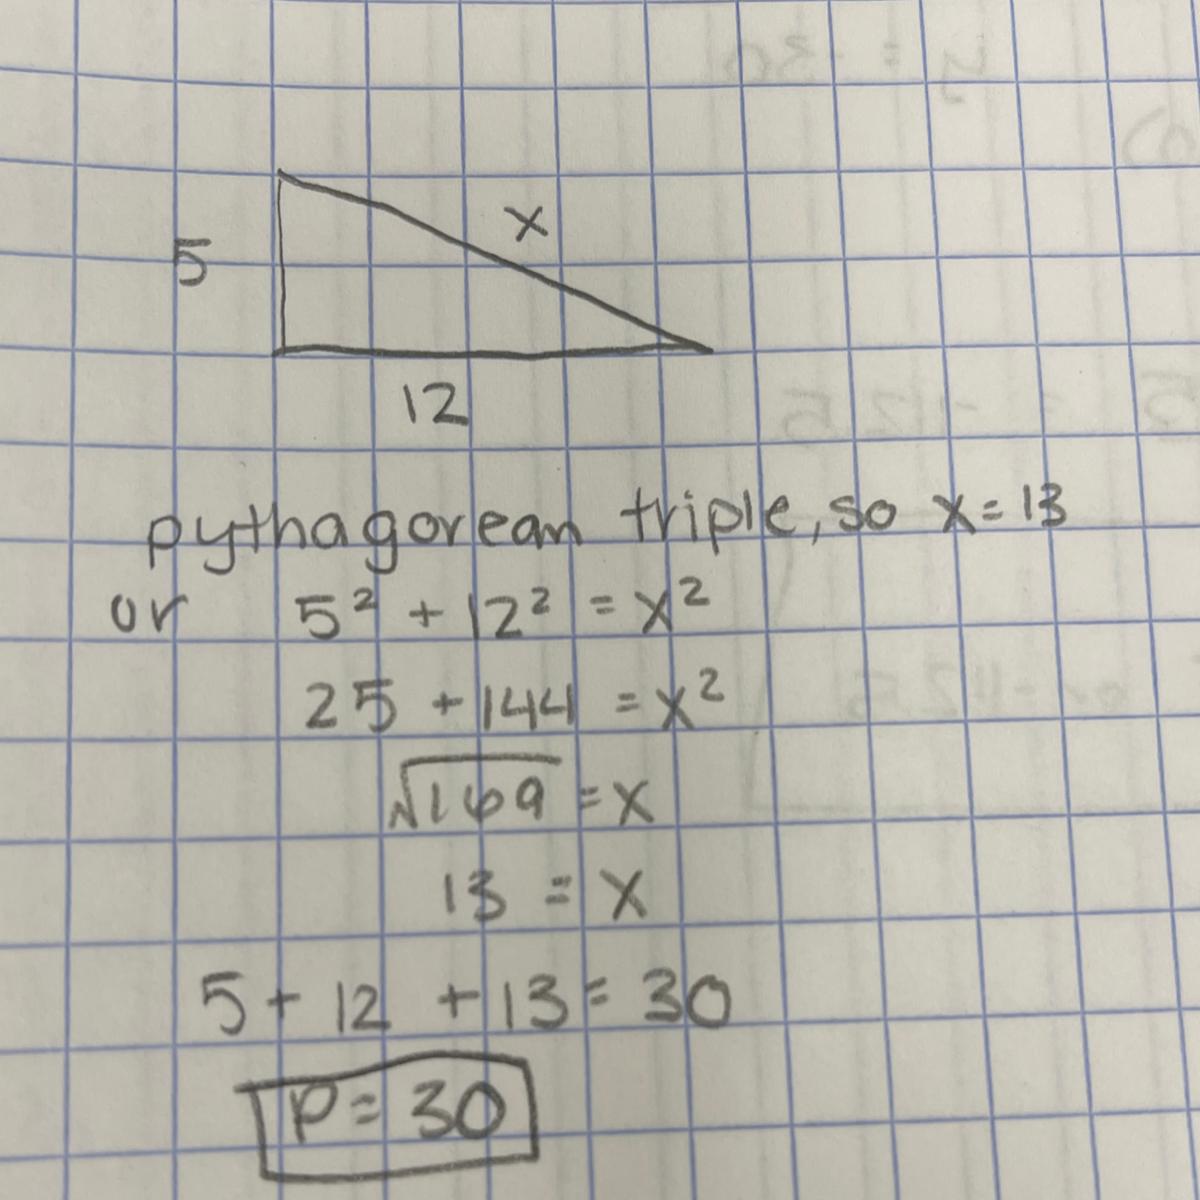 x
5
12
pythagorean triple, so x = 13
or 5² + 12² = x²
25 + 144 = x²
√169 = x
13 = x
5 + 12 + 13 = 30
P = 30